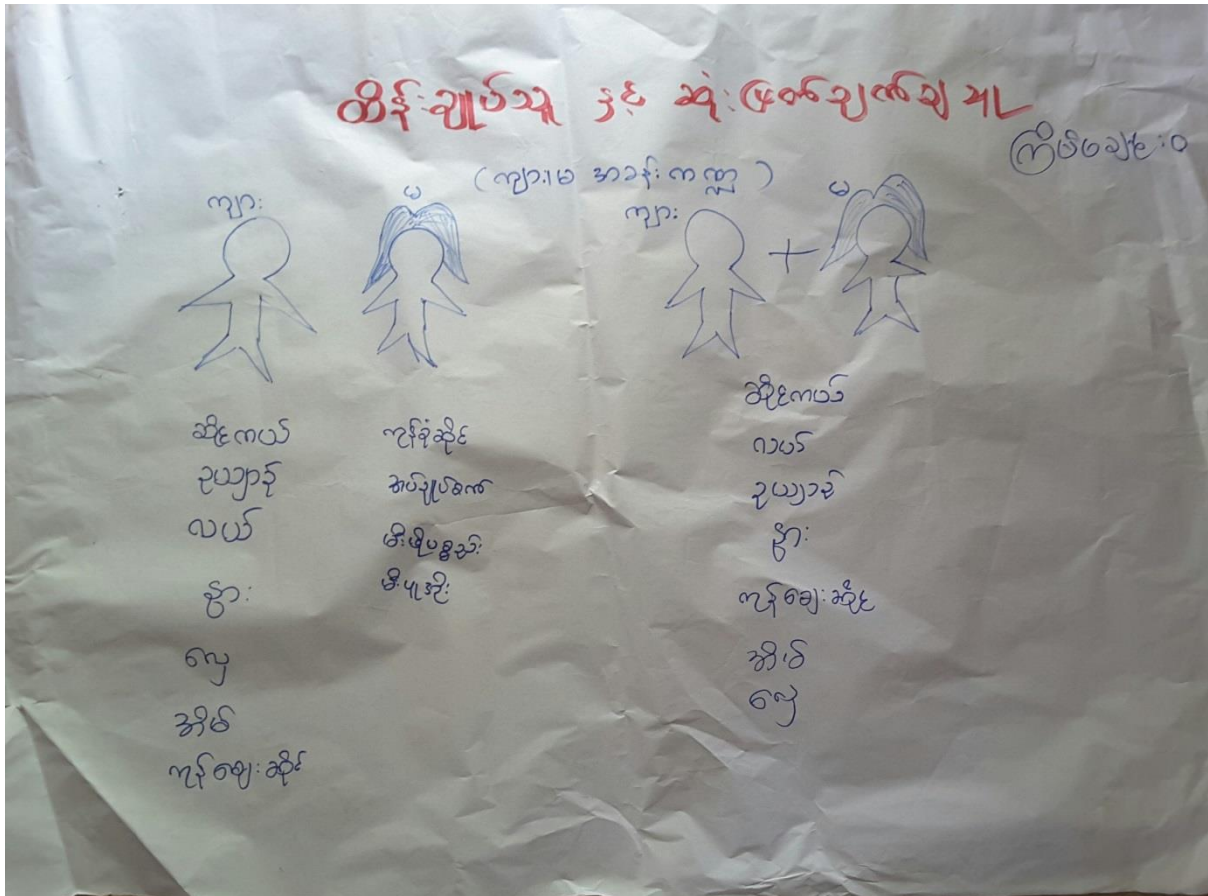 ထိန်းချုပ်သူ နှင့် ဆုံးဖြတ်ချက်ချသူ
(ကျား၊မ အခန်းကဏ္ဍ)
ကျား
မ
ဆိုင်ကယ်
ဥယျာဉ်
လယ်
နွား
လှေ
အိမ်
ကုန်ချေးဆိုင်
ကုန်စုံဆိုင်
အပ်ချုပ်စက်
မီးဖိုပစ္စည်း
ကျား
+
မ
ဆိုင်ကယ်
လယ်
ဥယျာဉ်
နွား
ကုန်ချေးဆိုင်
အိမ်
လှေ